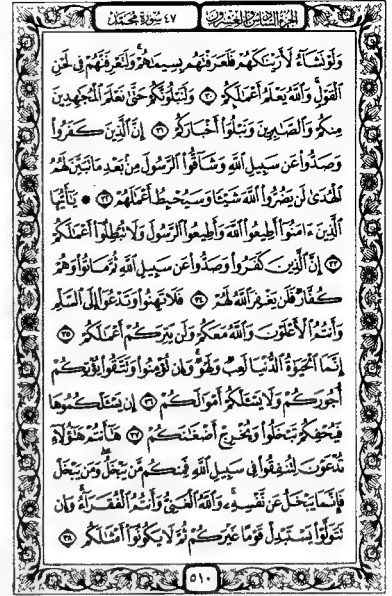 الجزء السادس والعشرون ٤٧ سورة محمد
وَلَوْ نَشَآءُ لَأَرَيْنَٰكَهُمْ فَلَعَرَفْتَهُم بِسِيمَٰهُمْ وَلَتَعْرِفَنَّهُمْ فِى لَحْنِ
ٱلْقَوْلِ وَٱللَّهُ يَعْلَمُ أَعْمَٰلَكُمْ ٣٠ وَلَنَبْلُوَنَّكُمْ حَتَّىٰ نَعْلَمَ ٱلْمُجَٰهِدِينَ
مِنكُمْ وَٱلصَّٰبِرِينَ وَنَبْلُوَا۟ أَخْبَارَكُمْ ٣١ إِنَّ ٱلَّذِينَ كَفَرُوا۟
وَصَدُّوا۟ عَن سَبِيلِ ٱللَّهِ وَشَآقُّوا۟ ٱلرَّسُولَ مِنۢ بَعْدِ مَا تَبَيَّنَ لَهُمُ
ٱلْهُدَىٰ لَن يَضُرُّوا۟ ٱللَّهَ شَيْـًٔا وَسَيُحْبِطُ أَعْمَٰلَهُمْ ٣٢ يَٰٓأَيُّهَا
ٱلَّذِينَ ءَامَنُوٓا۟ أَطِيعُوا۟ ٱللَّهَ وَأَطِيعُوا۟ ٱلرَّسُولَ وَلَا تُبْطِلُوٓا۟ أَعْمَٰلَكُمْ
٣٣ إِنَّ ٱلَّذِينَ كَفَرُوا۟ وَصَدُّوا۟ عَن سَبِيلِ ٱللَّهِ ثُمَّ مَاتُوا۟ وَهُمْ
كُفَّارٌ فَلَن يَغْفِرَ ٱللَّهُ لَهُمْ ٣٤ فَلَا تَهِنُوا۟ وَتَدْعُوٓا۟ إِلَى ٱلسَّلْمِ
وَأَنتُمُ ٱلْأَعْلَوْنَ وَٱللَّهُ مَعَكُمْ وَلَن يَتِرَكُمْ أَعْمَٰلَكُمْ ٣٥
إِنَّمَا ٱلْحَيَوٰةُ ٱلدُّنْيَا لَعِبٌ وَلَهْوٌ وَإِن تُؤْمِنُوا۟ وَتَتَّقُوا۟ يُؤْتِكُمْ
أُجُورَكُمْ وَلَا يَسْـَٔلْكُمْ أَمْوَٰلَكُمْ ٣٦ إِن يَسْـَٔلْكُمُوهَا
فَيُحْفِكُمْ تَبْخَلُوا۟ وَيُخْرِجْ أَضْغَٰنَكُمْ ٣٧ هَٰٓأَنتُمْ هَٰٓؤُلَآءِ
تُدْعَوْنَ لِتُنفِقُوا۟ فِى سَبِيلِ ٱللَّهِ فَمِنكُم مَّن يَبْخَلُ وَمَن يَبْخَلْ
فَإِنَّمَا يَبْخَلُ عَن نَّفْسِهِۦ وَٱللَّهُ ٱلْغَنِىُّ وَأَنتُمُ ٱلْفُقَرَآءُ وَإِن
تَتَوَلَّوْا۟ يَسْتَبْدِلْ قَوْمًا غَيْرَكُمْ ثُمَّ لَا يَكُونُوٓا۟ أَمْثَٰلَكُم ٣٨
٥١٠